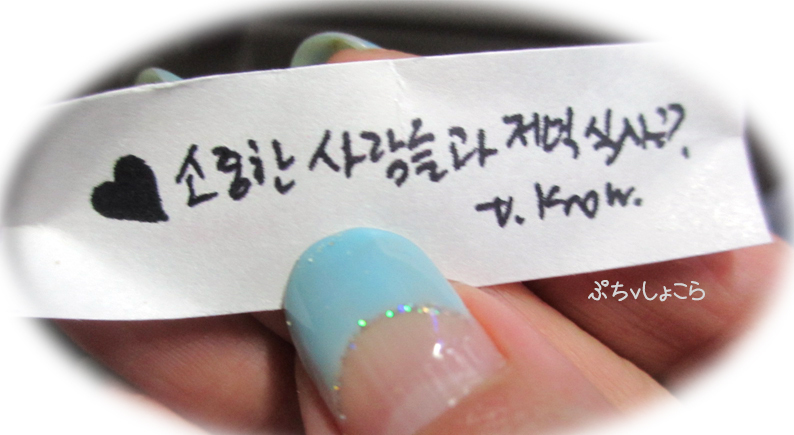 ♥ 소중한 사람들과 저녁 식사!?
U. Know.
ぷちvしょこら